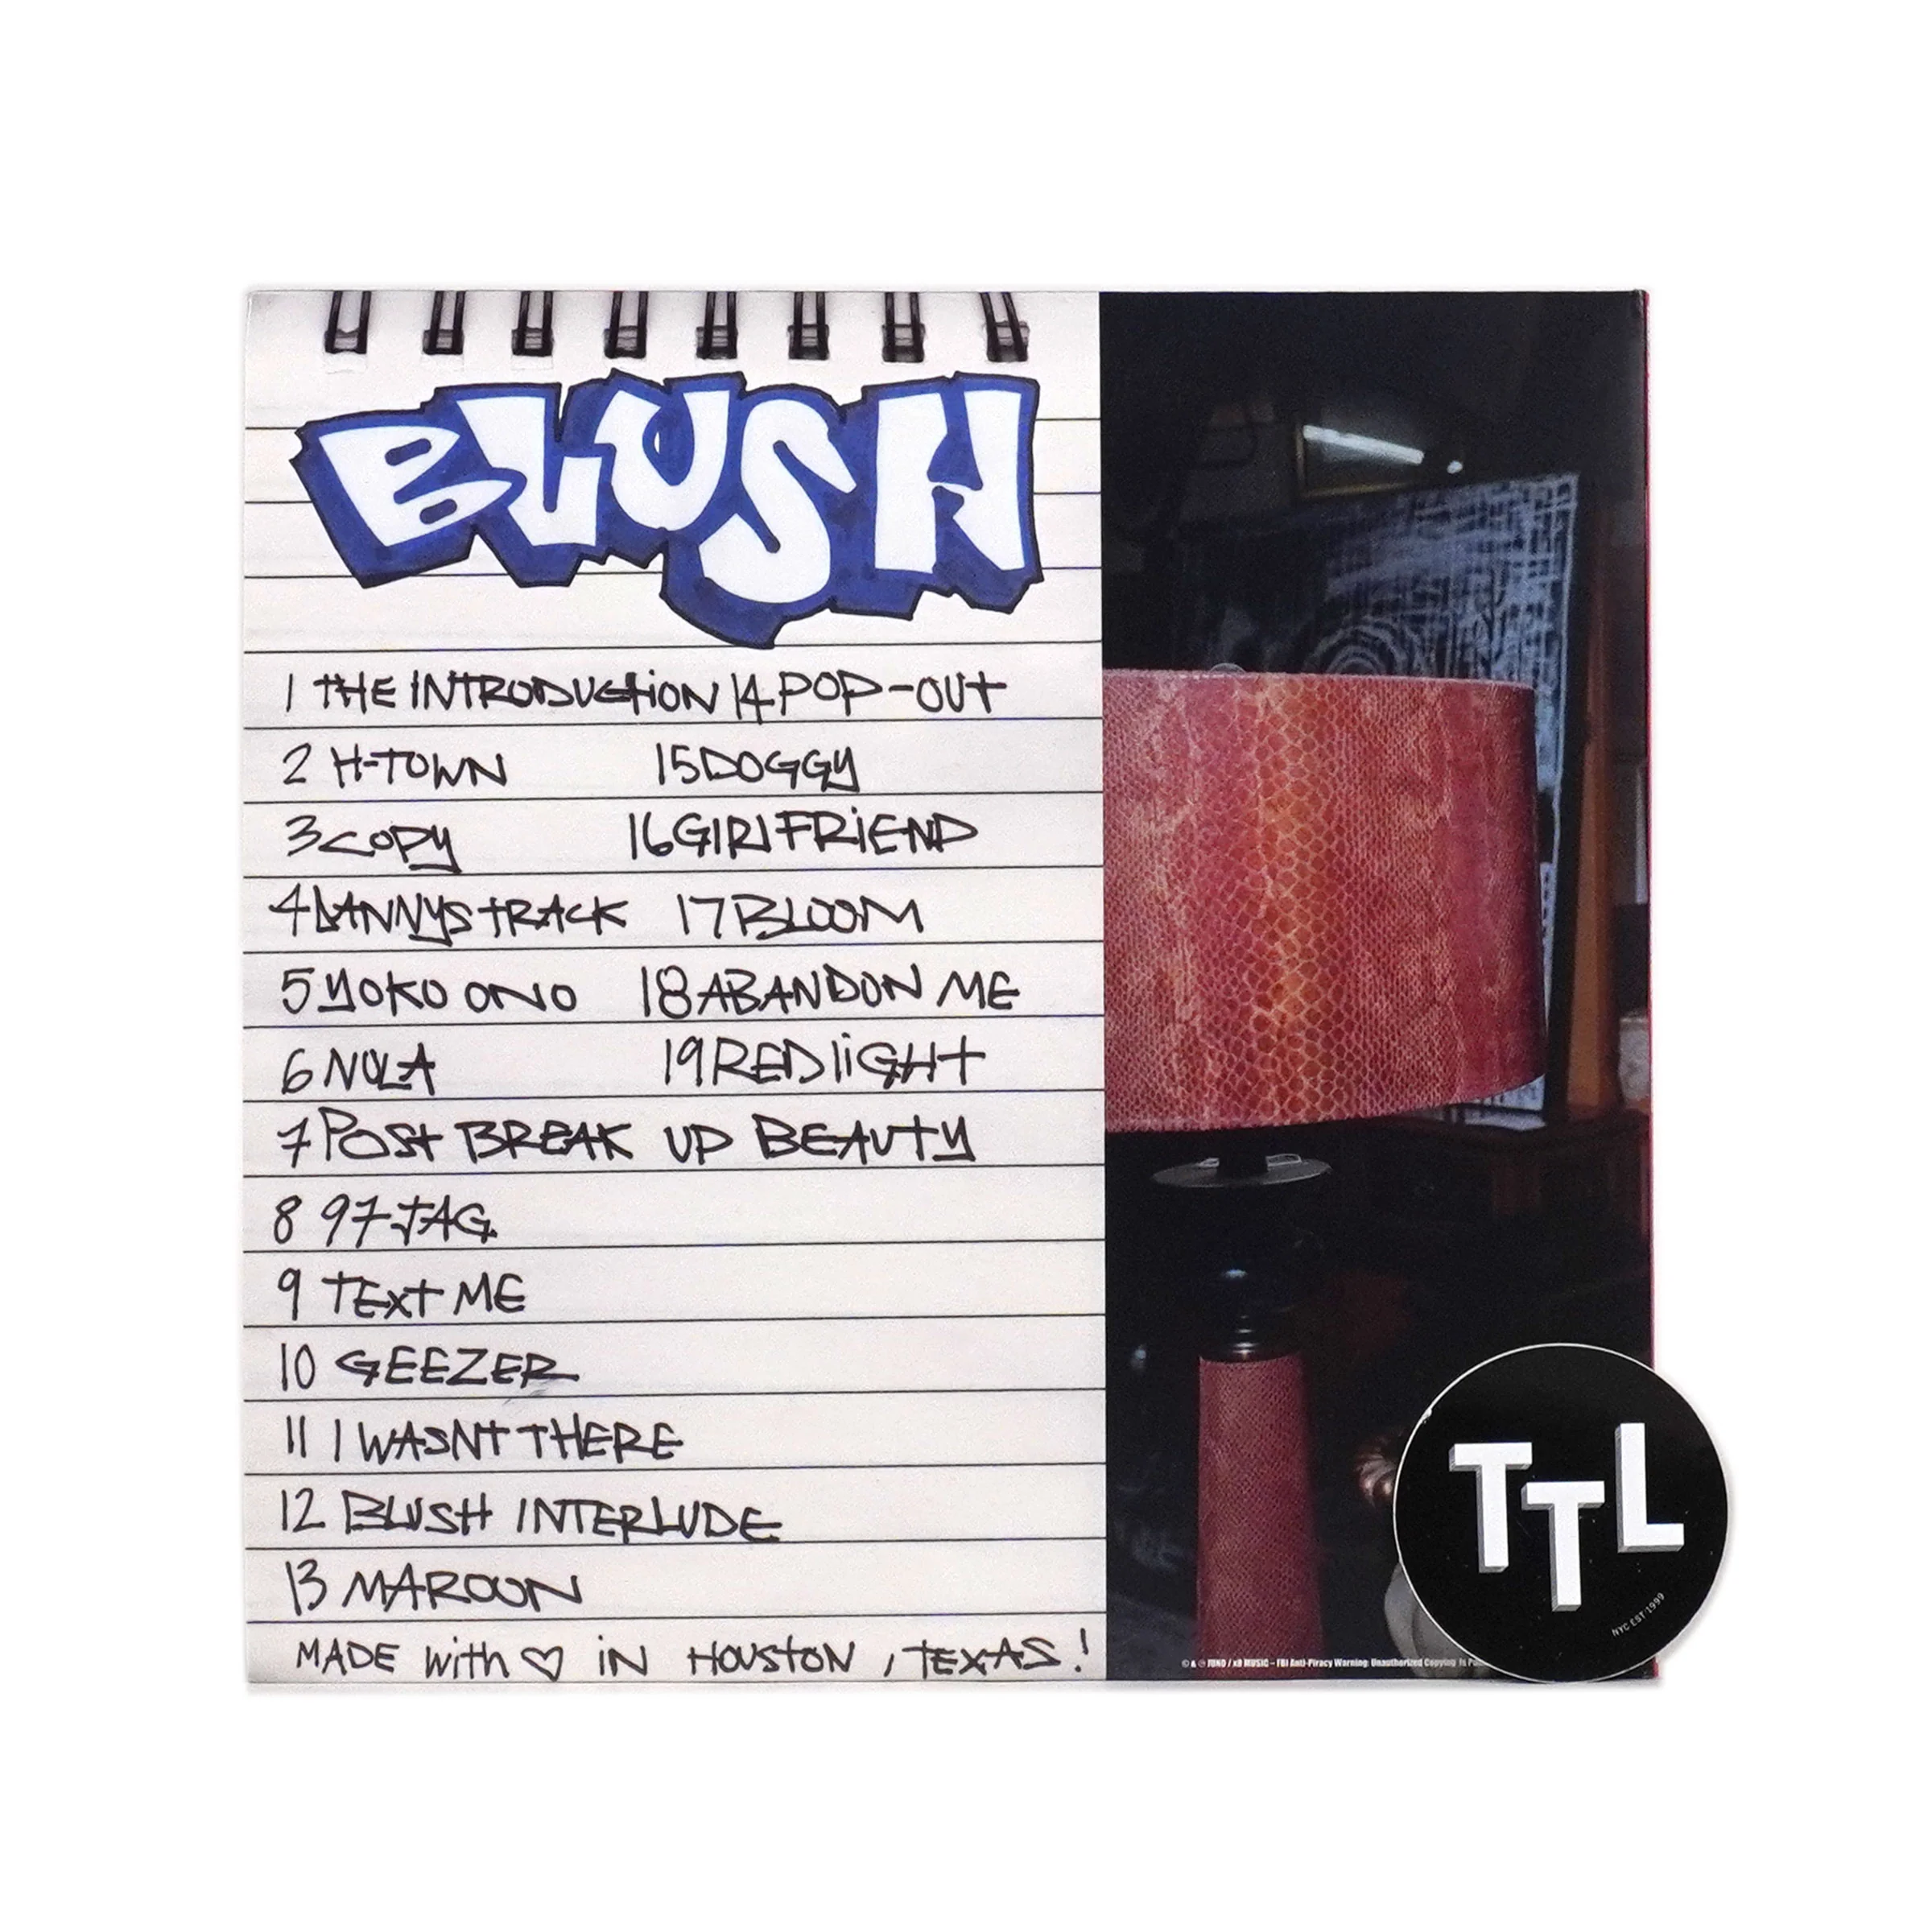 BLUSH
1 THE INTRODUCTION 14 POP-OUT
2 H-TOWN 15 DOGGY
3 COPY 16 GIRLFRIEND
4 DANNYS TRACK 17 BLOOM
5 YOKO ONO 18 ABANDON ME
6 NOLA 19 REDLIGHT
7 POST BREAK UP BEAUTY
8 97 JAG
9 TEXT ME
10 GEEZER
11 I WASNT THERE
12 BLUSH INTERLUDE
13 MAROON
MADE with ♡ iN HOUSTON , TEXAS !
TTL
NYC EST 1999
MUSIC – FBI Anti-Piracy Warning: Unauthorized Copying Is